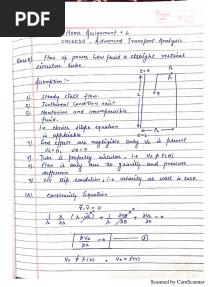 PDF
Home Assignment # 2
CHL6020 - Advanced Transport Analysis
Flow of power law fluid in straight vertical
circular tube.
Assumption :-
1) Steady state flow.
2) Isothermal condition exist
3) Newtonian and incompressible
fluid.
is applicable
4) End effects are negligible only Vz is present
5) Tube is perfectly circular, i.e. Vz ≠ f(θ)
6) Flow is only due to gravity and pressure
difference
7) No slip condition, i.e. velocity at wall is zero.
(A) Continuity Equation
∇·V = 0
∂Vz/∂z = 0
Vz ≠ f(z) Vz = f(r)
Scanned by CamScanner